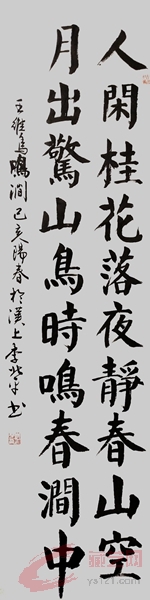 人閑桂花落夜靜春山空
月出驚山鳥時鳴春澗中
王維鳥鳴澗己亥陽春於漢上李